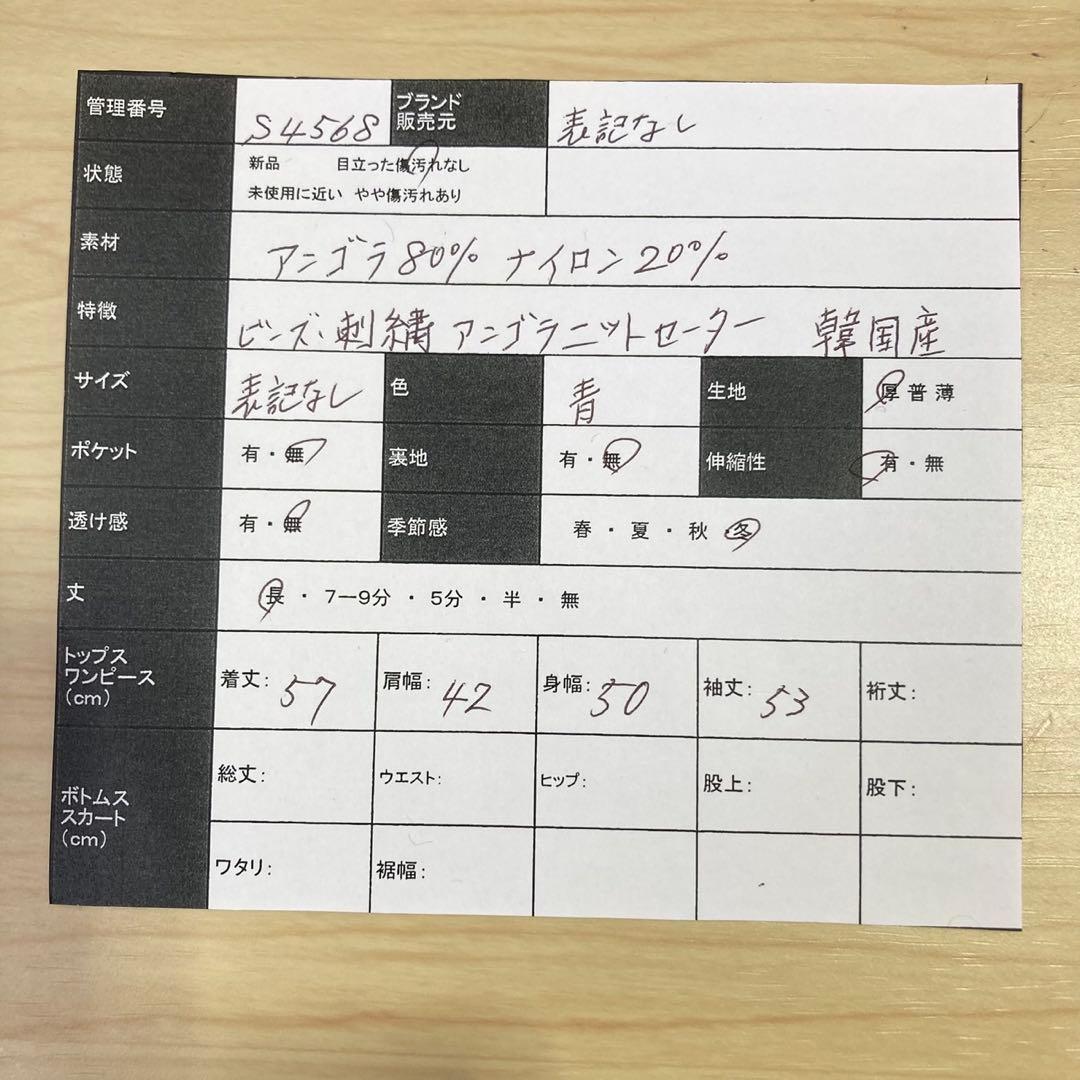 管理番号 S4568 ブランド販売元 表記なし
状態 新品 目立った傷汚れなし
未使用に近い やや傷汚れあり
素材 アンゴラ80% ナイロン20%
特徴 ビーズ刺繍 アンゴラニットセーター 韓国産
サイズ 表記なし 色 青 生地 厚 普 薄
ポケット 有・無 裏地 有・無 伸縮性 有・無
透け感 有・無 季節感 春・夏・秋・冬
丈 長・7ー9分・5分・半・無
トップス
ワンピース
(cm)
着丈: 57 肩幅: 42 身幅: 50 袖丈: 53 裄丈:
ボトムス
スカート
(cm)
総丈: ウエスト: ヒップ: 股上: 股下:
ワタリ: 裾幅: